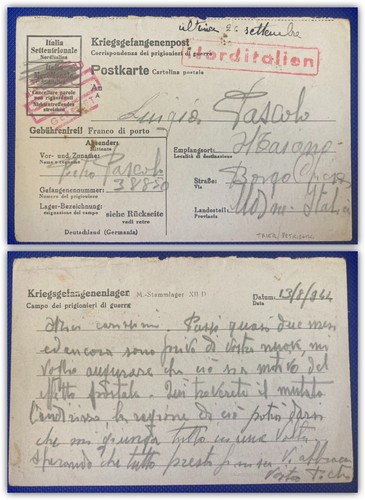 ultima 24 settembre
Italia
Settentrionale
Norditalien
Cancellare parole
non rigorerenti
Nichtzutreffendes
streichen
Kriegsgefangenenpost
Corrispondenza dei prigionieri di guerra
Norditalien
Postkarte Cartolina postale
An
A
Luigia Pascolo
Gebührenfrei! Franco di porto
Absender:
Mittente
Vor- und Zuname:
Nome e cognome
Pietro Pascolo
Gefangenennummer:
Numero del prigioniero
38880
Lager-Bezeichnung:
siehe Rückseite
vedi retro
Deutschland (Germania)
Empfangsort:
Località di destinazione
Straße:
Via
Borgo
Landesteil:
Provincia
Italia
Kriegsgefangenenlager M.-Stammlager XII D
Campo dei prigionieri di guerra
Datum: 13/8/944
Data
Miei carissimi. Passò quasi due mesi
ed ancora sono privo di vostre nuove, mi
voglio augurare che ciò sia motivo del
postale. Qui troverete il mutato
indirizzo, la ragione di ciò potrà darsi
che mi giunga tutto in una volta
Sperando che tutto presto finisca. Vi abbraccio
Vostro